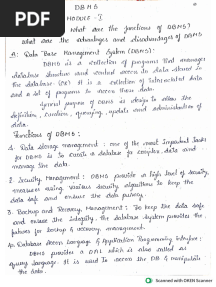 PDF
DBMS
MODULE - I
What are the functions of DBMS?
What are the advantages and disadvantages of DBMS
A: Data Base Management System (DBMS):
DBMS is a collection of programs that manages
database structure and control access to data stored in
the database. (Or) It is a collection of Interrelated data
and a set of programs to access those data.
general purpose of DBMS is design to allow the
definition, creation, querying, update and administration of
data.
Functions of DBMS:
1. Data storage management: one of the most important tasks
for DBMS is to create a database for complex data and
manage the data.
2. Security Management: DBMS provide a high level of security
measures using various security algorithms to keep the
data safe and ensure the data privacy.
3. Backup and Recovery Management: To keep the data safe
and ensure the integrity, the database system provides the
features for backup & recovery management.
4. Database Access Language & Application Programming Interface:
DBMS provides a DAL which is also called as
query language. It is used to access the DB & manipulate
the data.
Scanned with OKEN Scanner